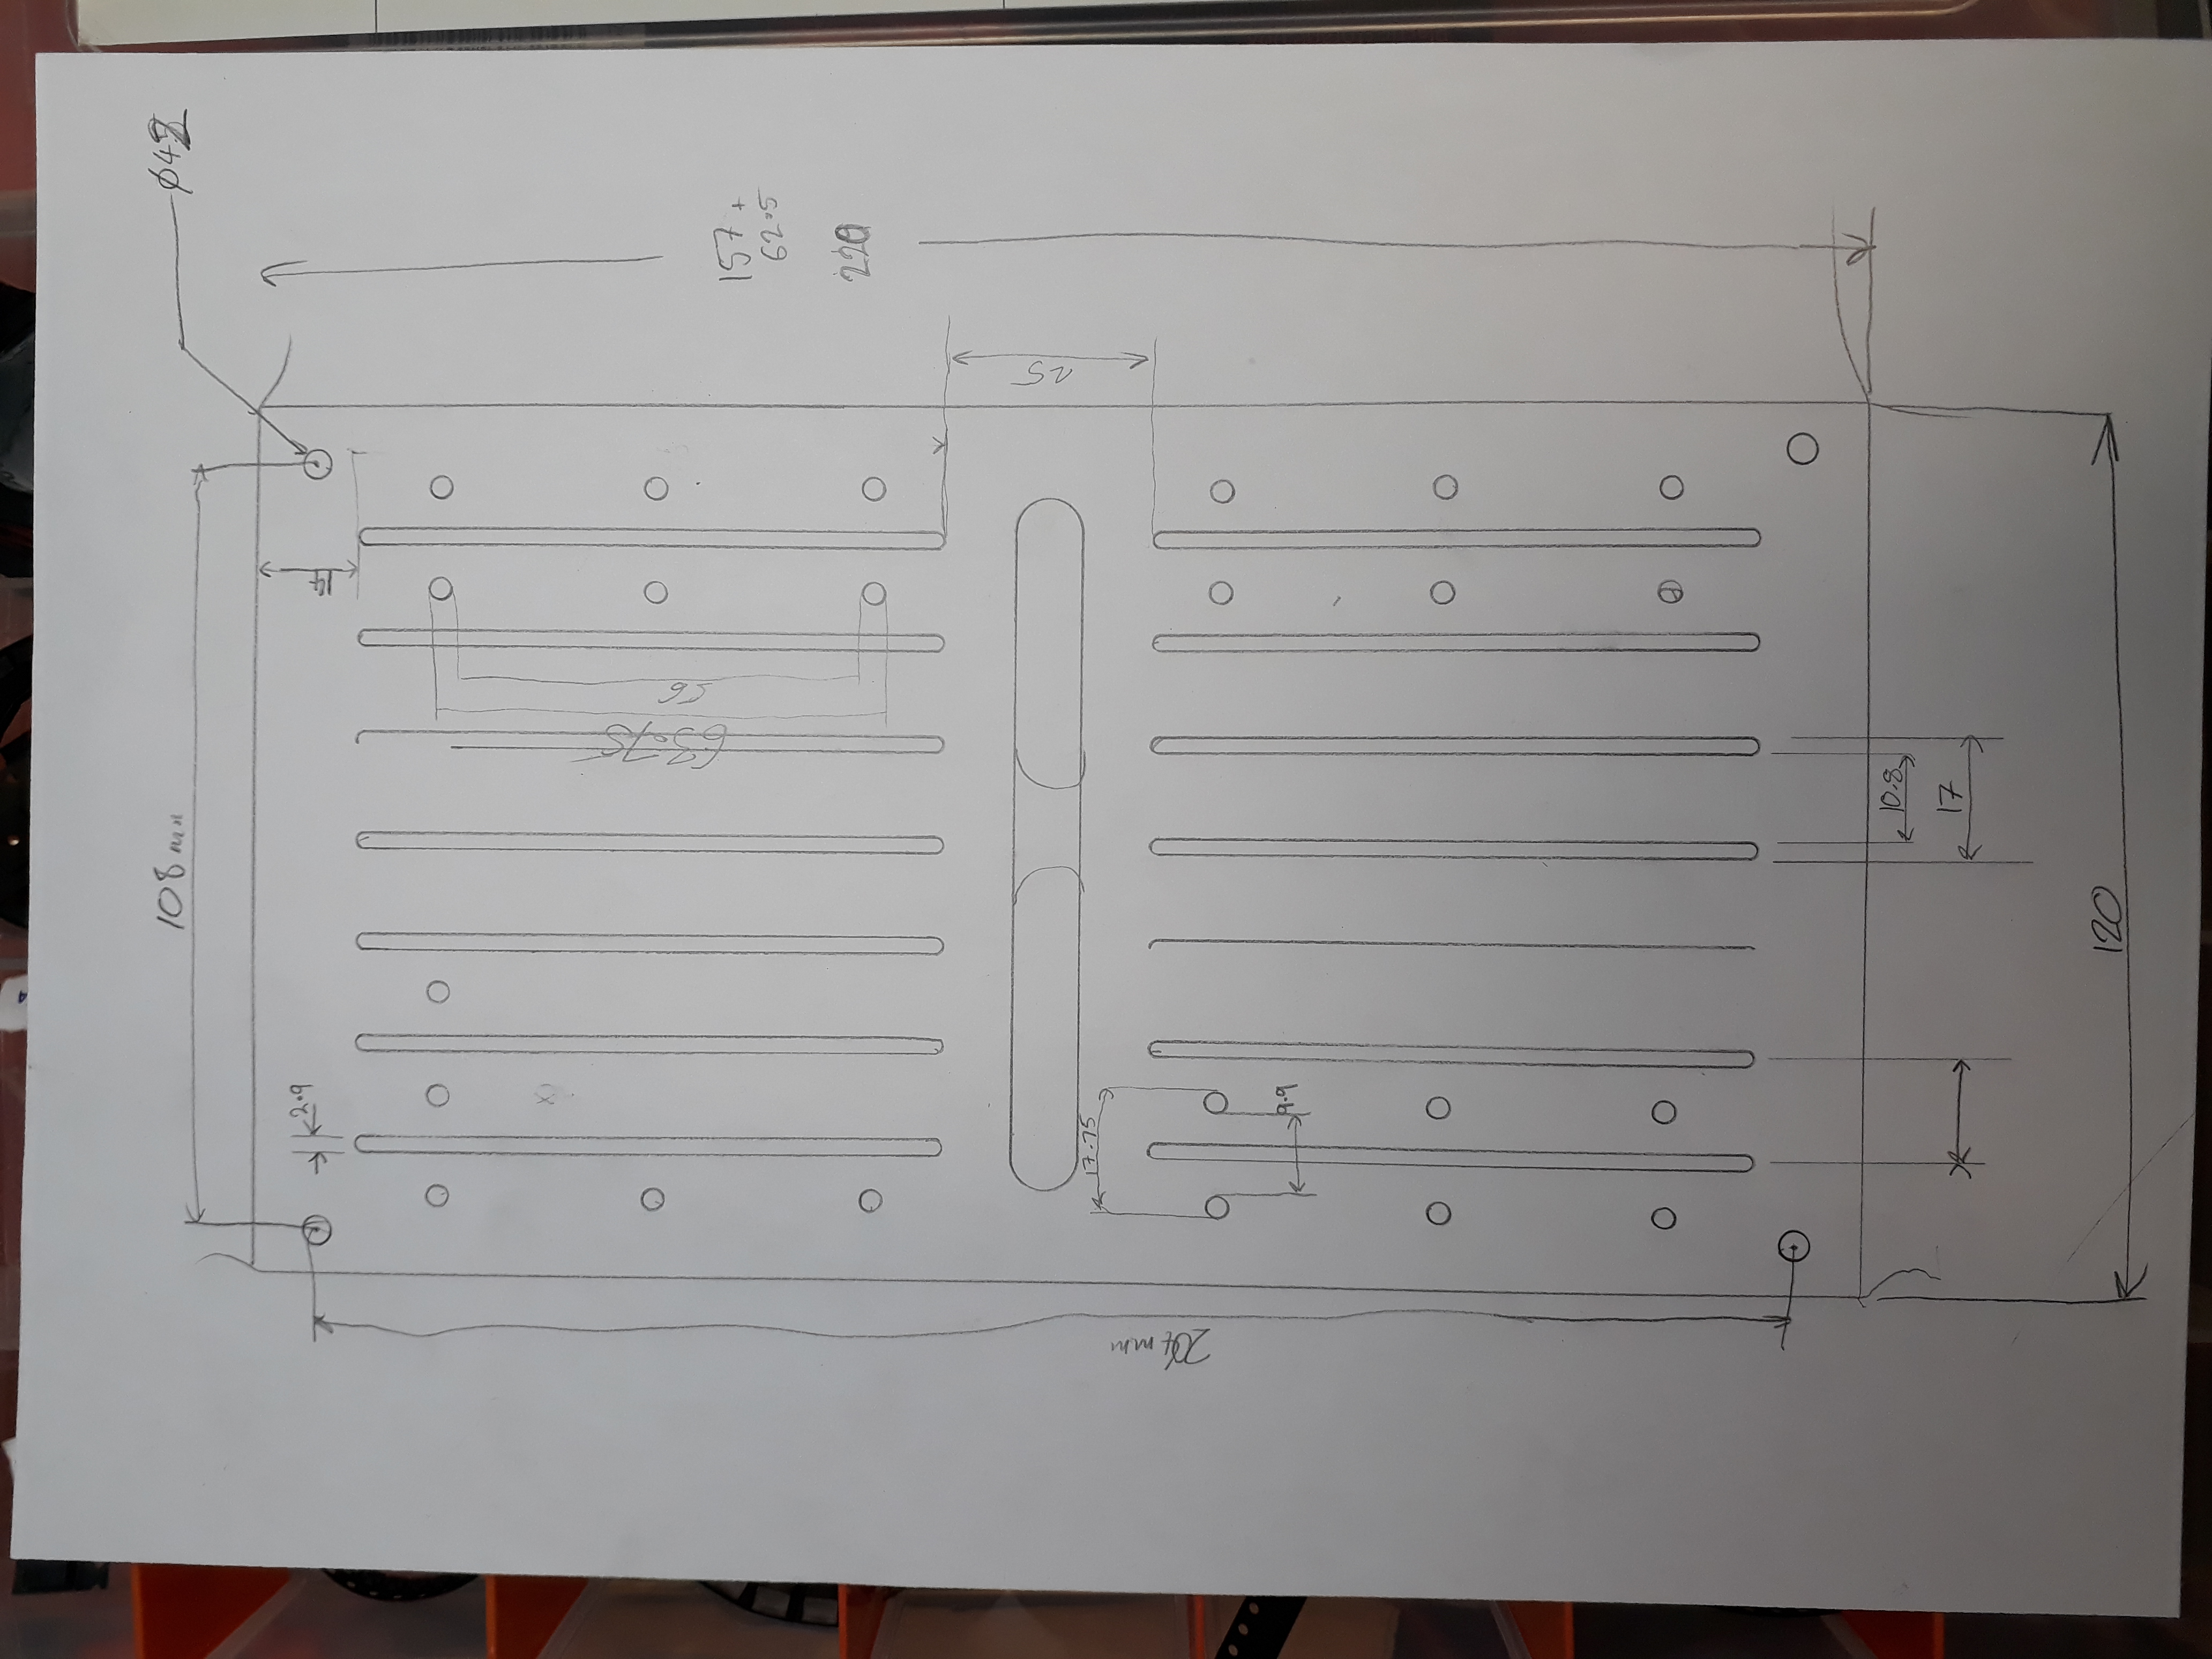 108 mm
2.9
14
63.75
56
157 +
62.5
220
25
17.75
204 mm
9.9
10.8
17
120